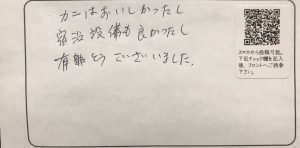 カニはおいしかったし
宿泊設備も良かったし
有難とうございいました。
スマホから投稿可能。
下記チェック欄を記入
後、フロントへご持参
下さい。